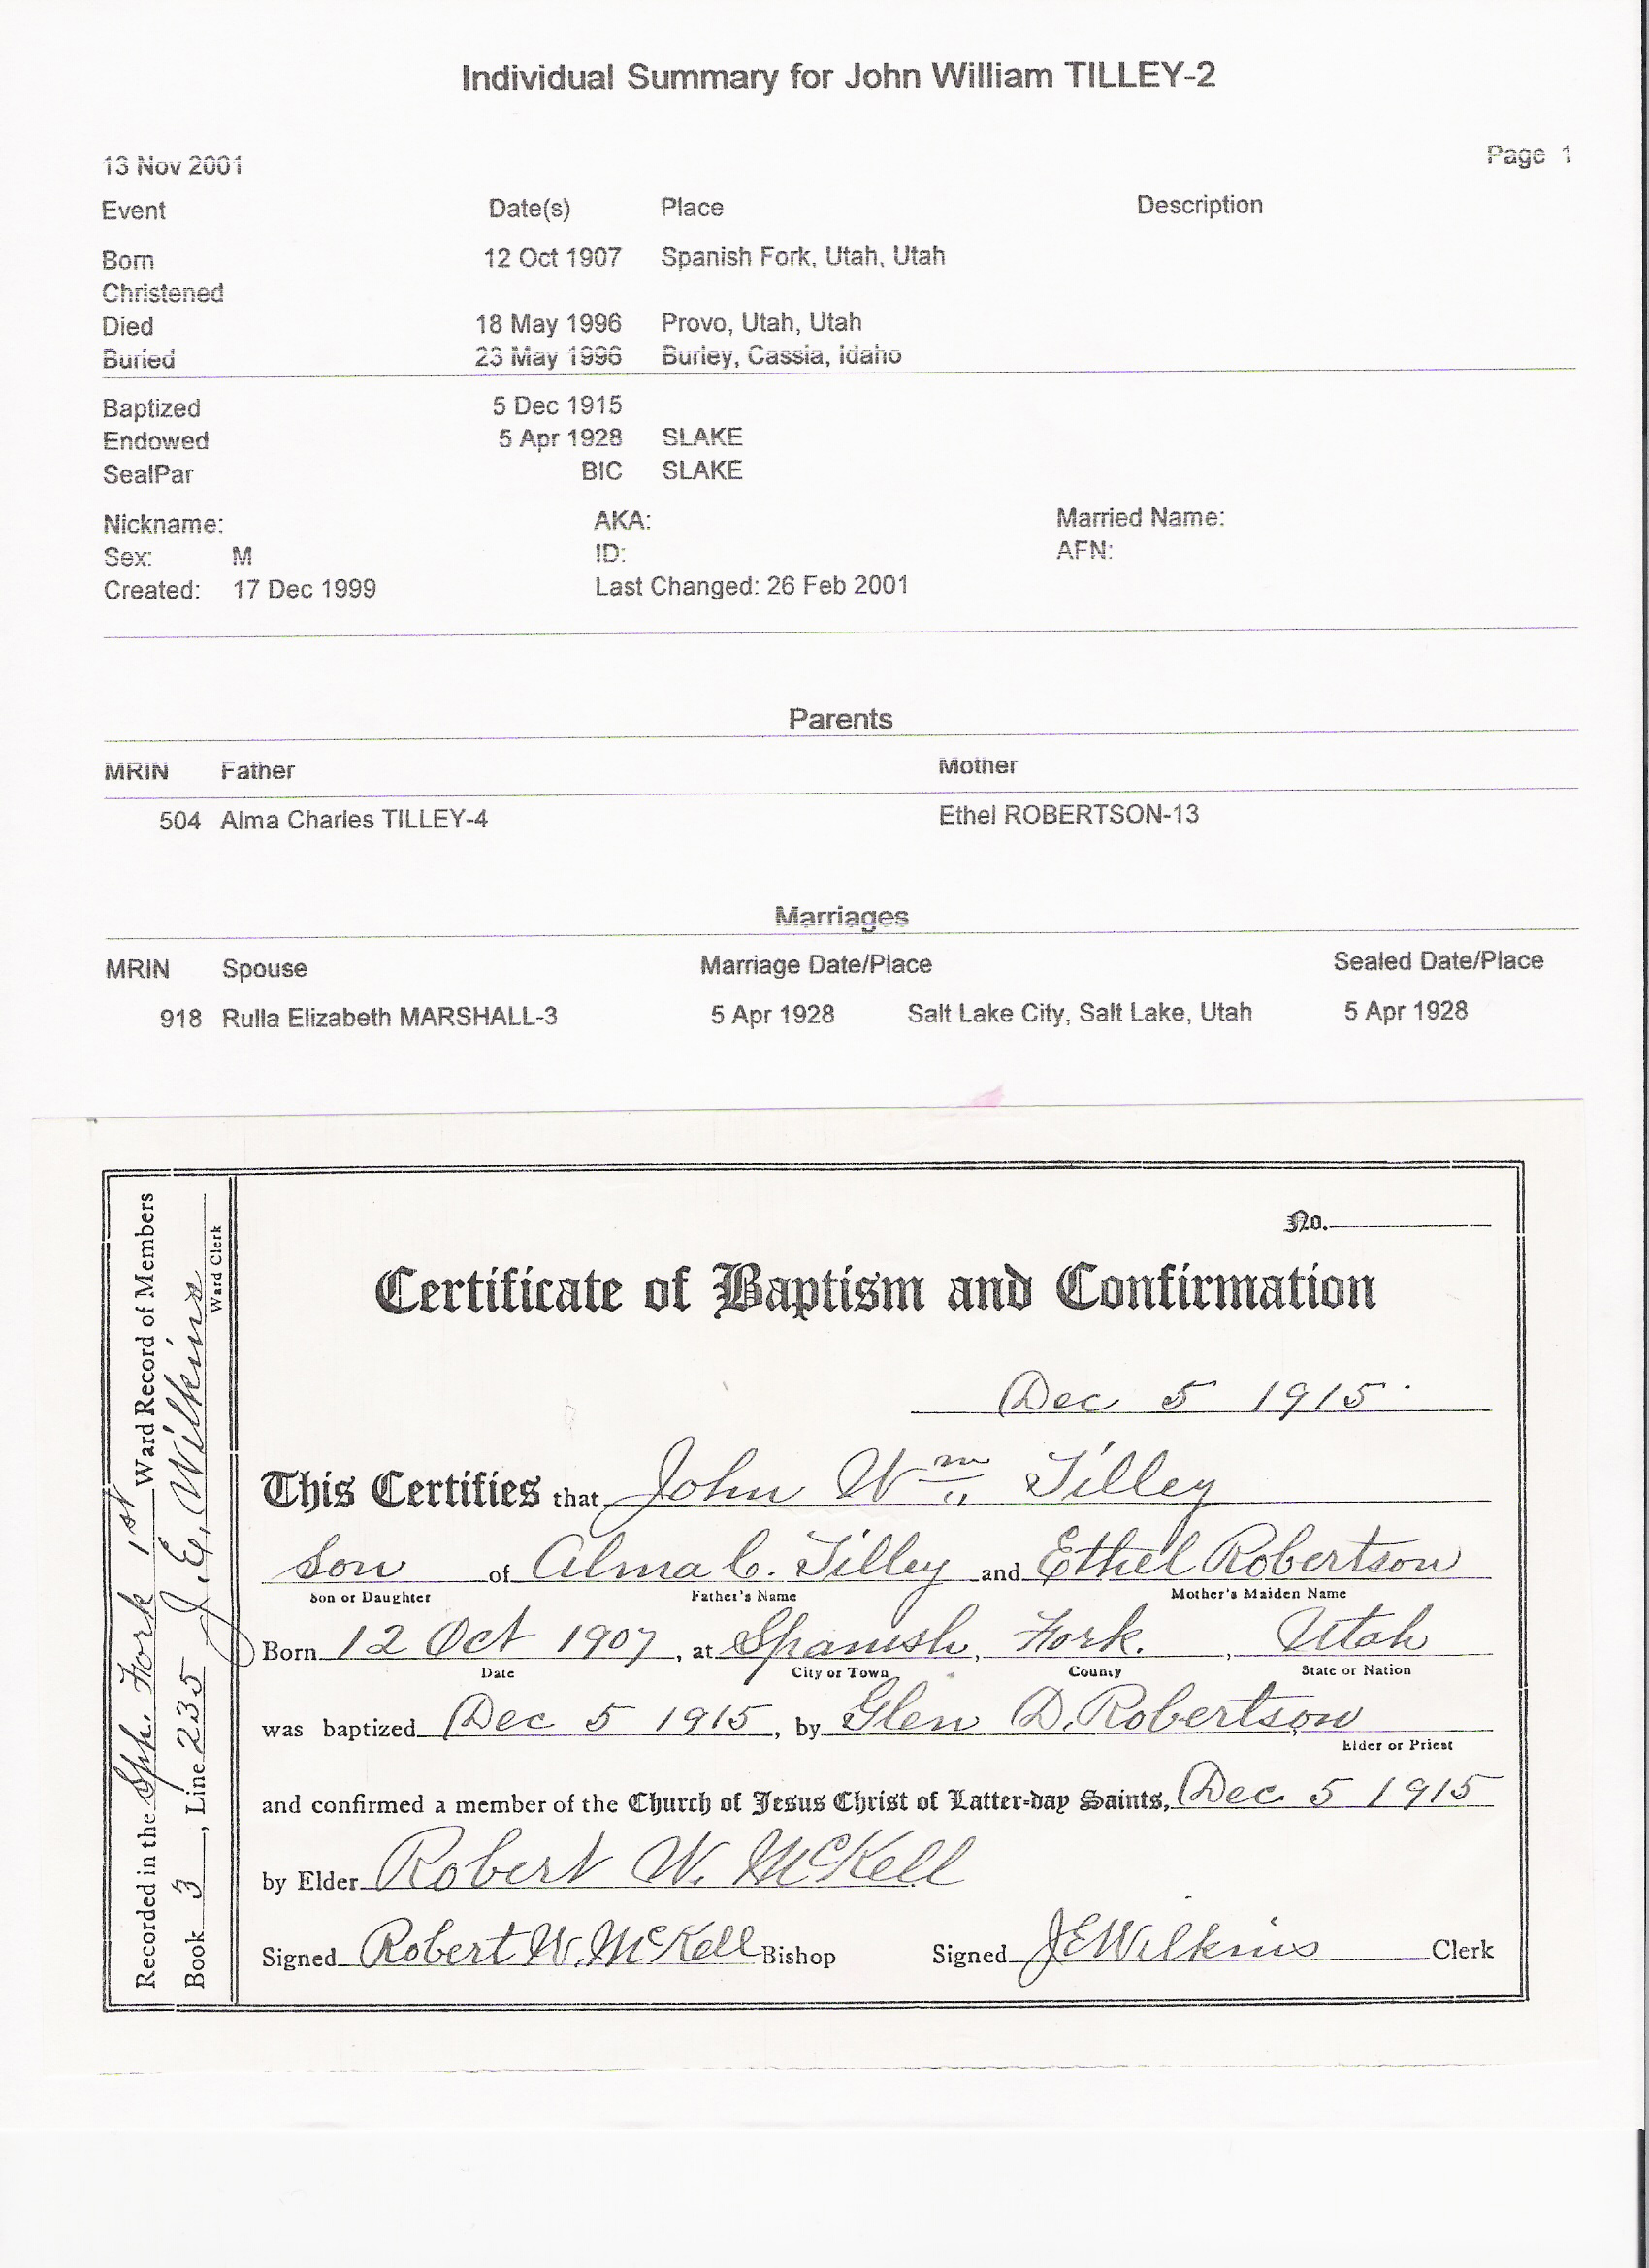 Individual Summary for John William TILLEY-2
13 Nov 2001 Page 1
Event Date(s) Place Description
Born 12 Oct 1907 Spanish Fork, Utah, Utah
Christened
Died 18 May 1996 Provo, Utah, Utah
Buried 23 May 1996 Burley, Cassia, Idaho
Baptized 5 Dec 1915
Endowed 5 Apr 1928 SLAKE
SealPar BIC SLAKE
Nickname: AKA: Married Name:
Sex: M ID: AFN:
Created: 17 Dec 1999 Last Changed: 26 Feb 2001
Parents
MRIN Father Mother
504 Alma Charles TILLEY-4 Ethel ROBERTSON-13
Marriages
MRIN Spouse Marriage Date/Place Sealed Date/Place
918 Rulla Elizabeth MARSHALL-3 5 Apr 1928 Salt Lake City, Salt Lake, Utah 5 Apr 1928
Recorded in the Sph. Fork 1st Ward Record of Members
Book 3, Line 235 J. E. Wilkins
Ward Clerk
No.
Certificate of Baptism and Confirmation
Dec 5 1915
This Certifies that John Wm. Tilley
Son of Alma C. Tilley and Ethel Robertson
Son or Daughter Father's Name Mother's Maiden Name
Born 12 Oct 1907, at Spanish, Fork., Utah
Date City or Town County State or Nation
was baptized Dec 5 1915, by Glen D. Robertson
Elder or Priest
and confirmed a member of the Church of Jesus Christ of Latter-day Saints, Dec. 5 1915
by Elder Robert W. McKell
Signed Robert W. McKell Bishop Signed J E Wilkins Clerk